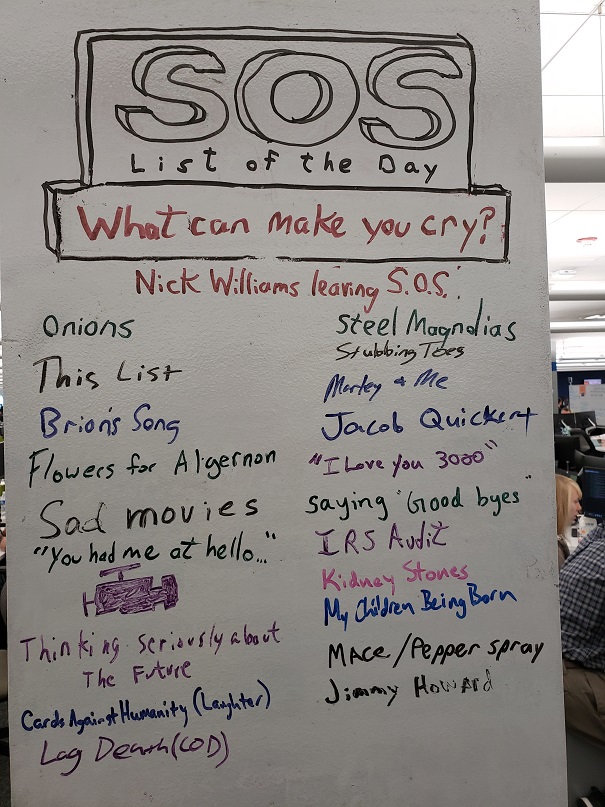 SOS
List of the Day
What can make you cry?
Nick Williams leaving S.O.S.
Onions
This List
Brion's Song
Flowers for Algernon
Sad movies
"You had me at hello..."
Thinking seriously about
The Future
Cards Against Humanity (Laughter)
Lag Death (COD)
Steel Magnolias
Stubbing Toes
Marley & Me
Jacob Quickert
"I Love You 3000"
saying "Good byes"
IRS Audit
Kidney Stones
My Children Being Born
MAce/Pepper spray
Jimmy Howard